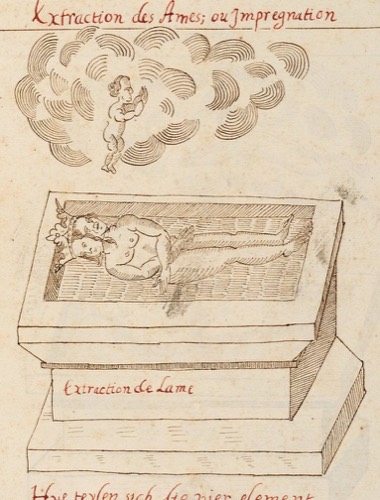 Extraction des Ames; ou Impregnation
Extraction de Lame
Hye teylen sich die vier element